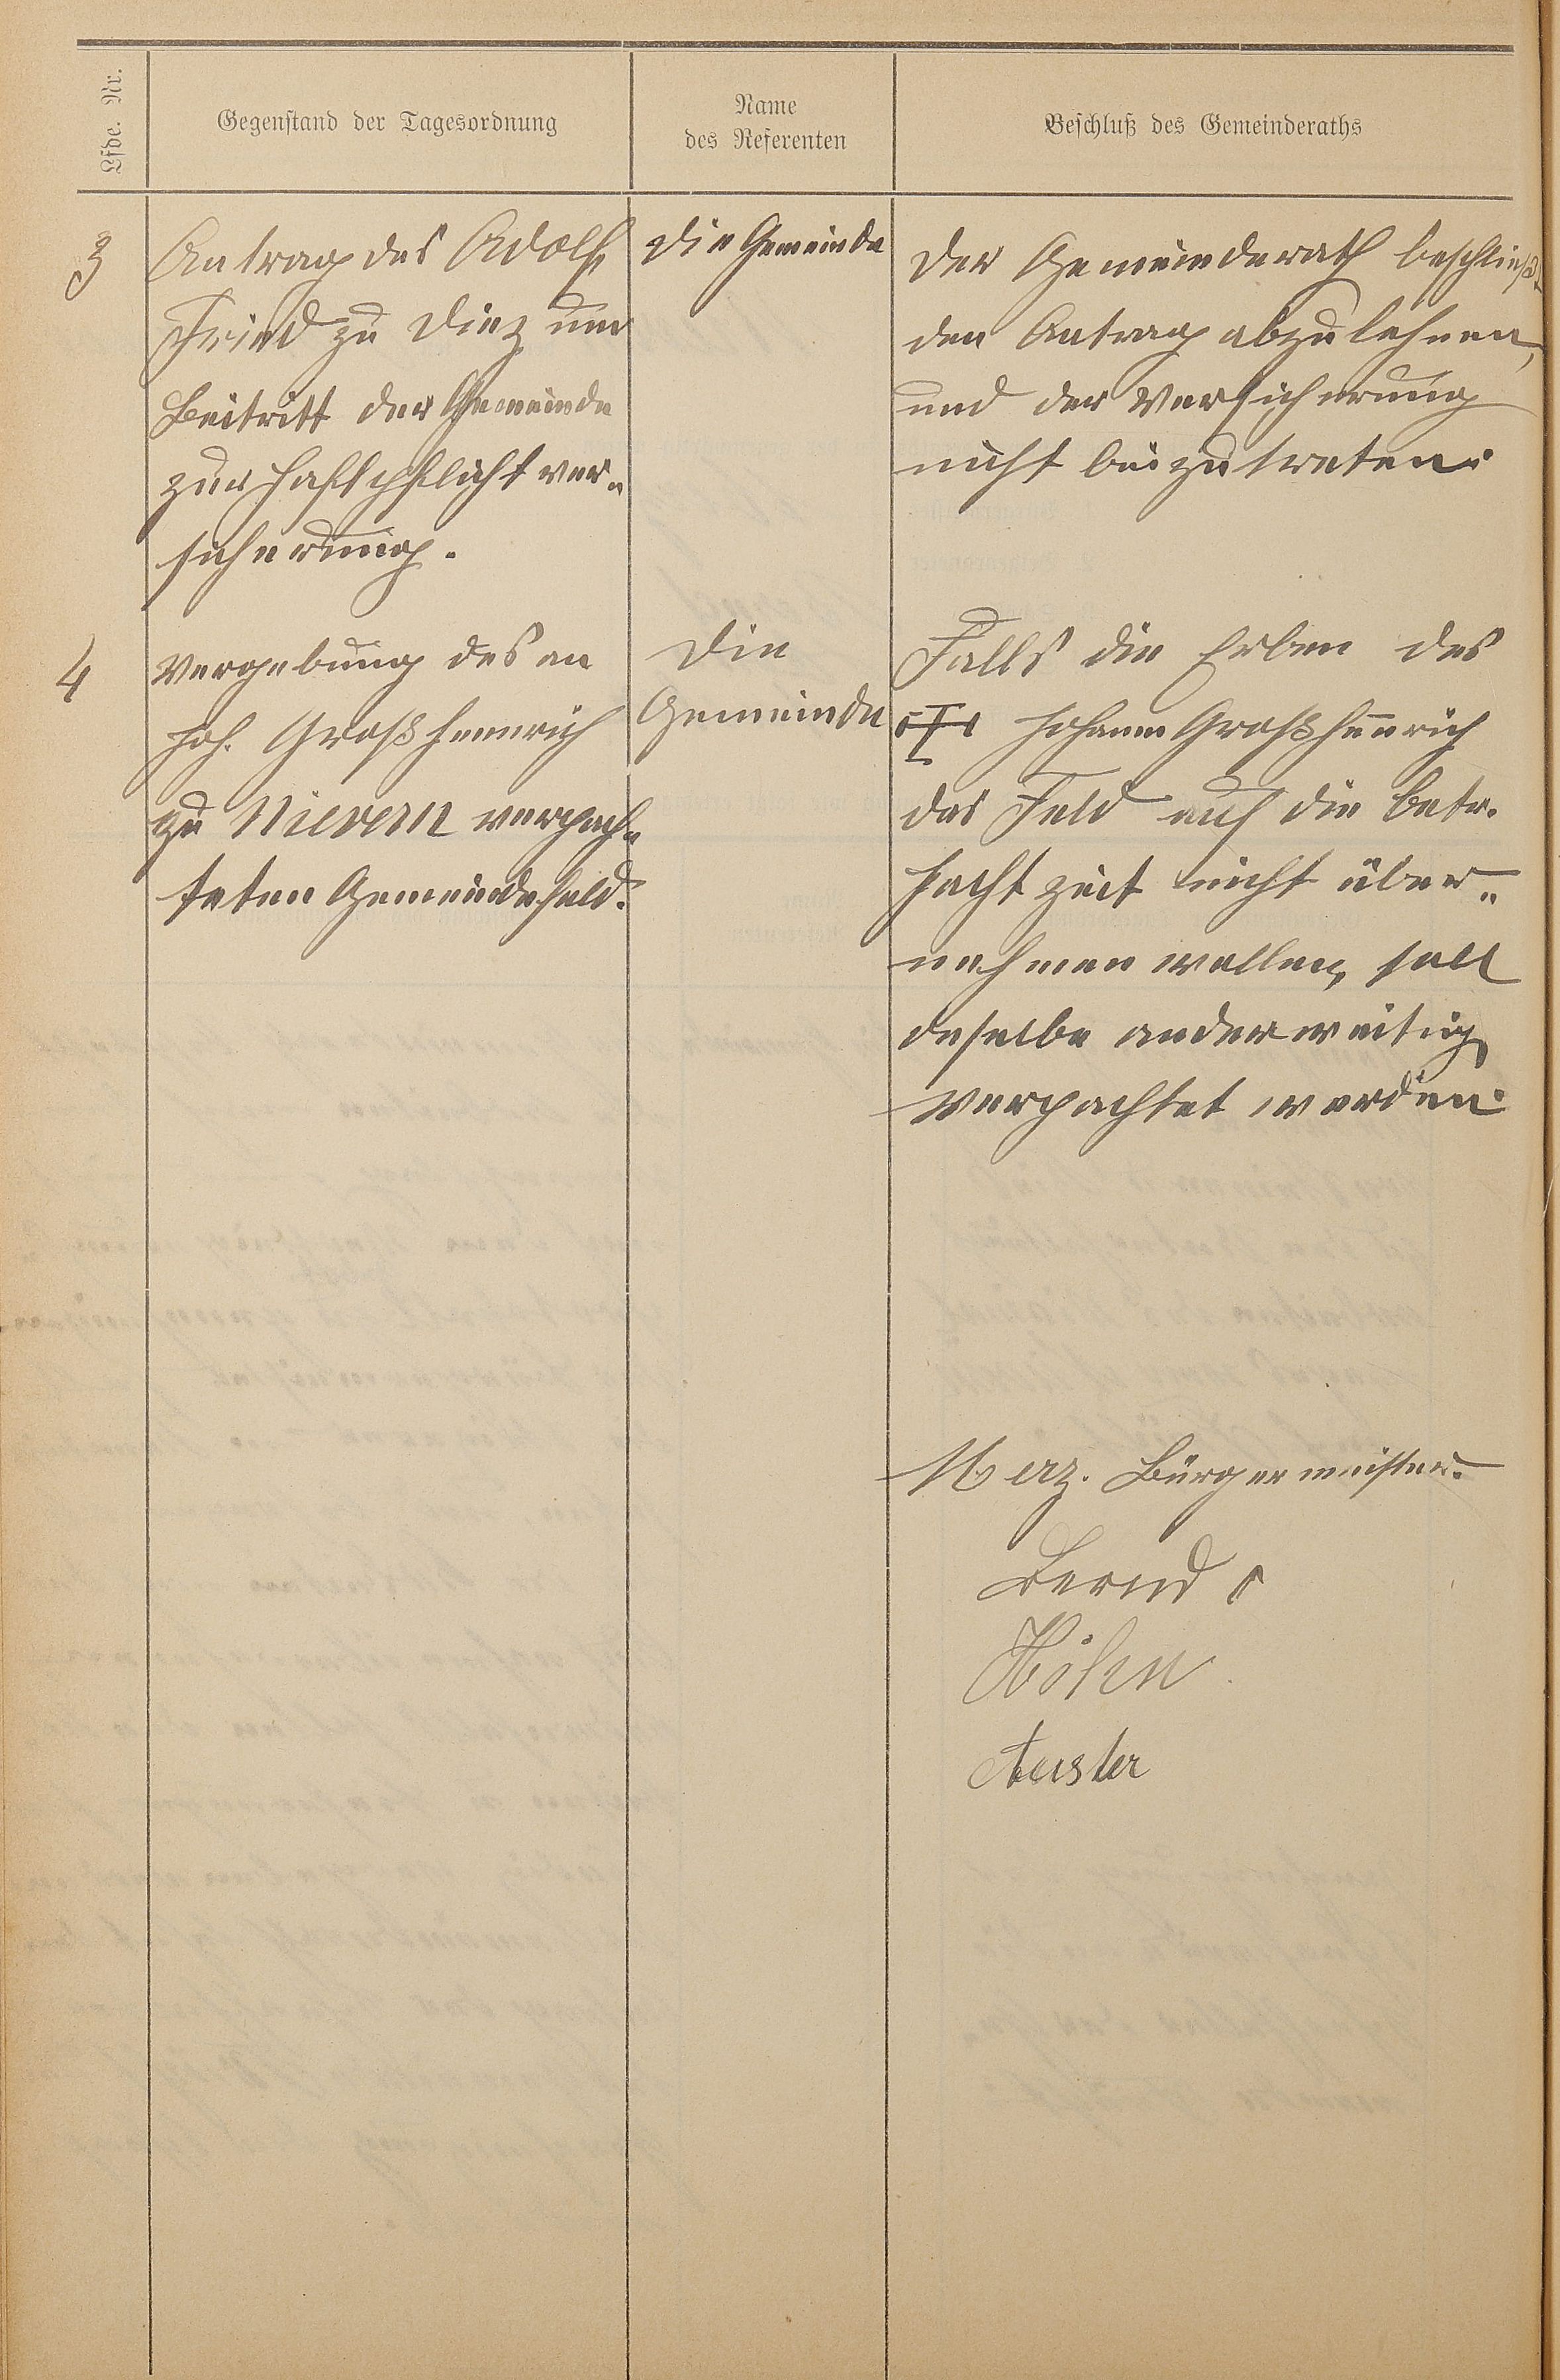 Lfde. Nr.
Gegenstand der Tagesordnung
Name
des Referenten
Beschluß des Gemeinderaths
3
Antrag des Adolf
Fried zu Diez um
Beitritt der Gemeinde
zur Haftpflichtver„
sicherung.
Die Gemeinde
Der Gemeinderath beschließt
den Antrag abzulehnen,
und der Versicherung
nicht beizutreten.
4
Vergebung des an
Joh. Großhennrich
zu Nievern verpach„
teten Gemeindefeld.
Die
Gemeinde
Falls die Erben des
Johann Großhennrich
das Feld auf die betr.
Pachtzeit nicht über„
nehmen wollen, soll
deselbe anderweitig
verpachtet werden.
Merz. Bürgermeister.
Bernd
Höhn
Auster